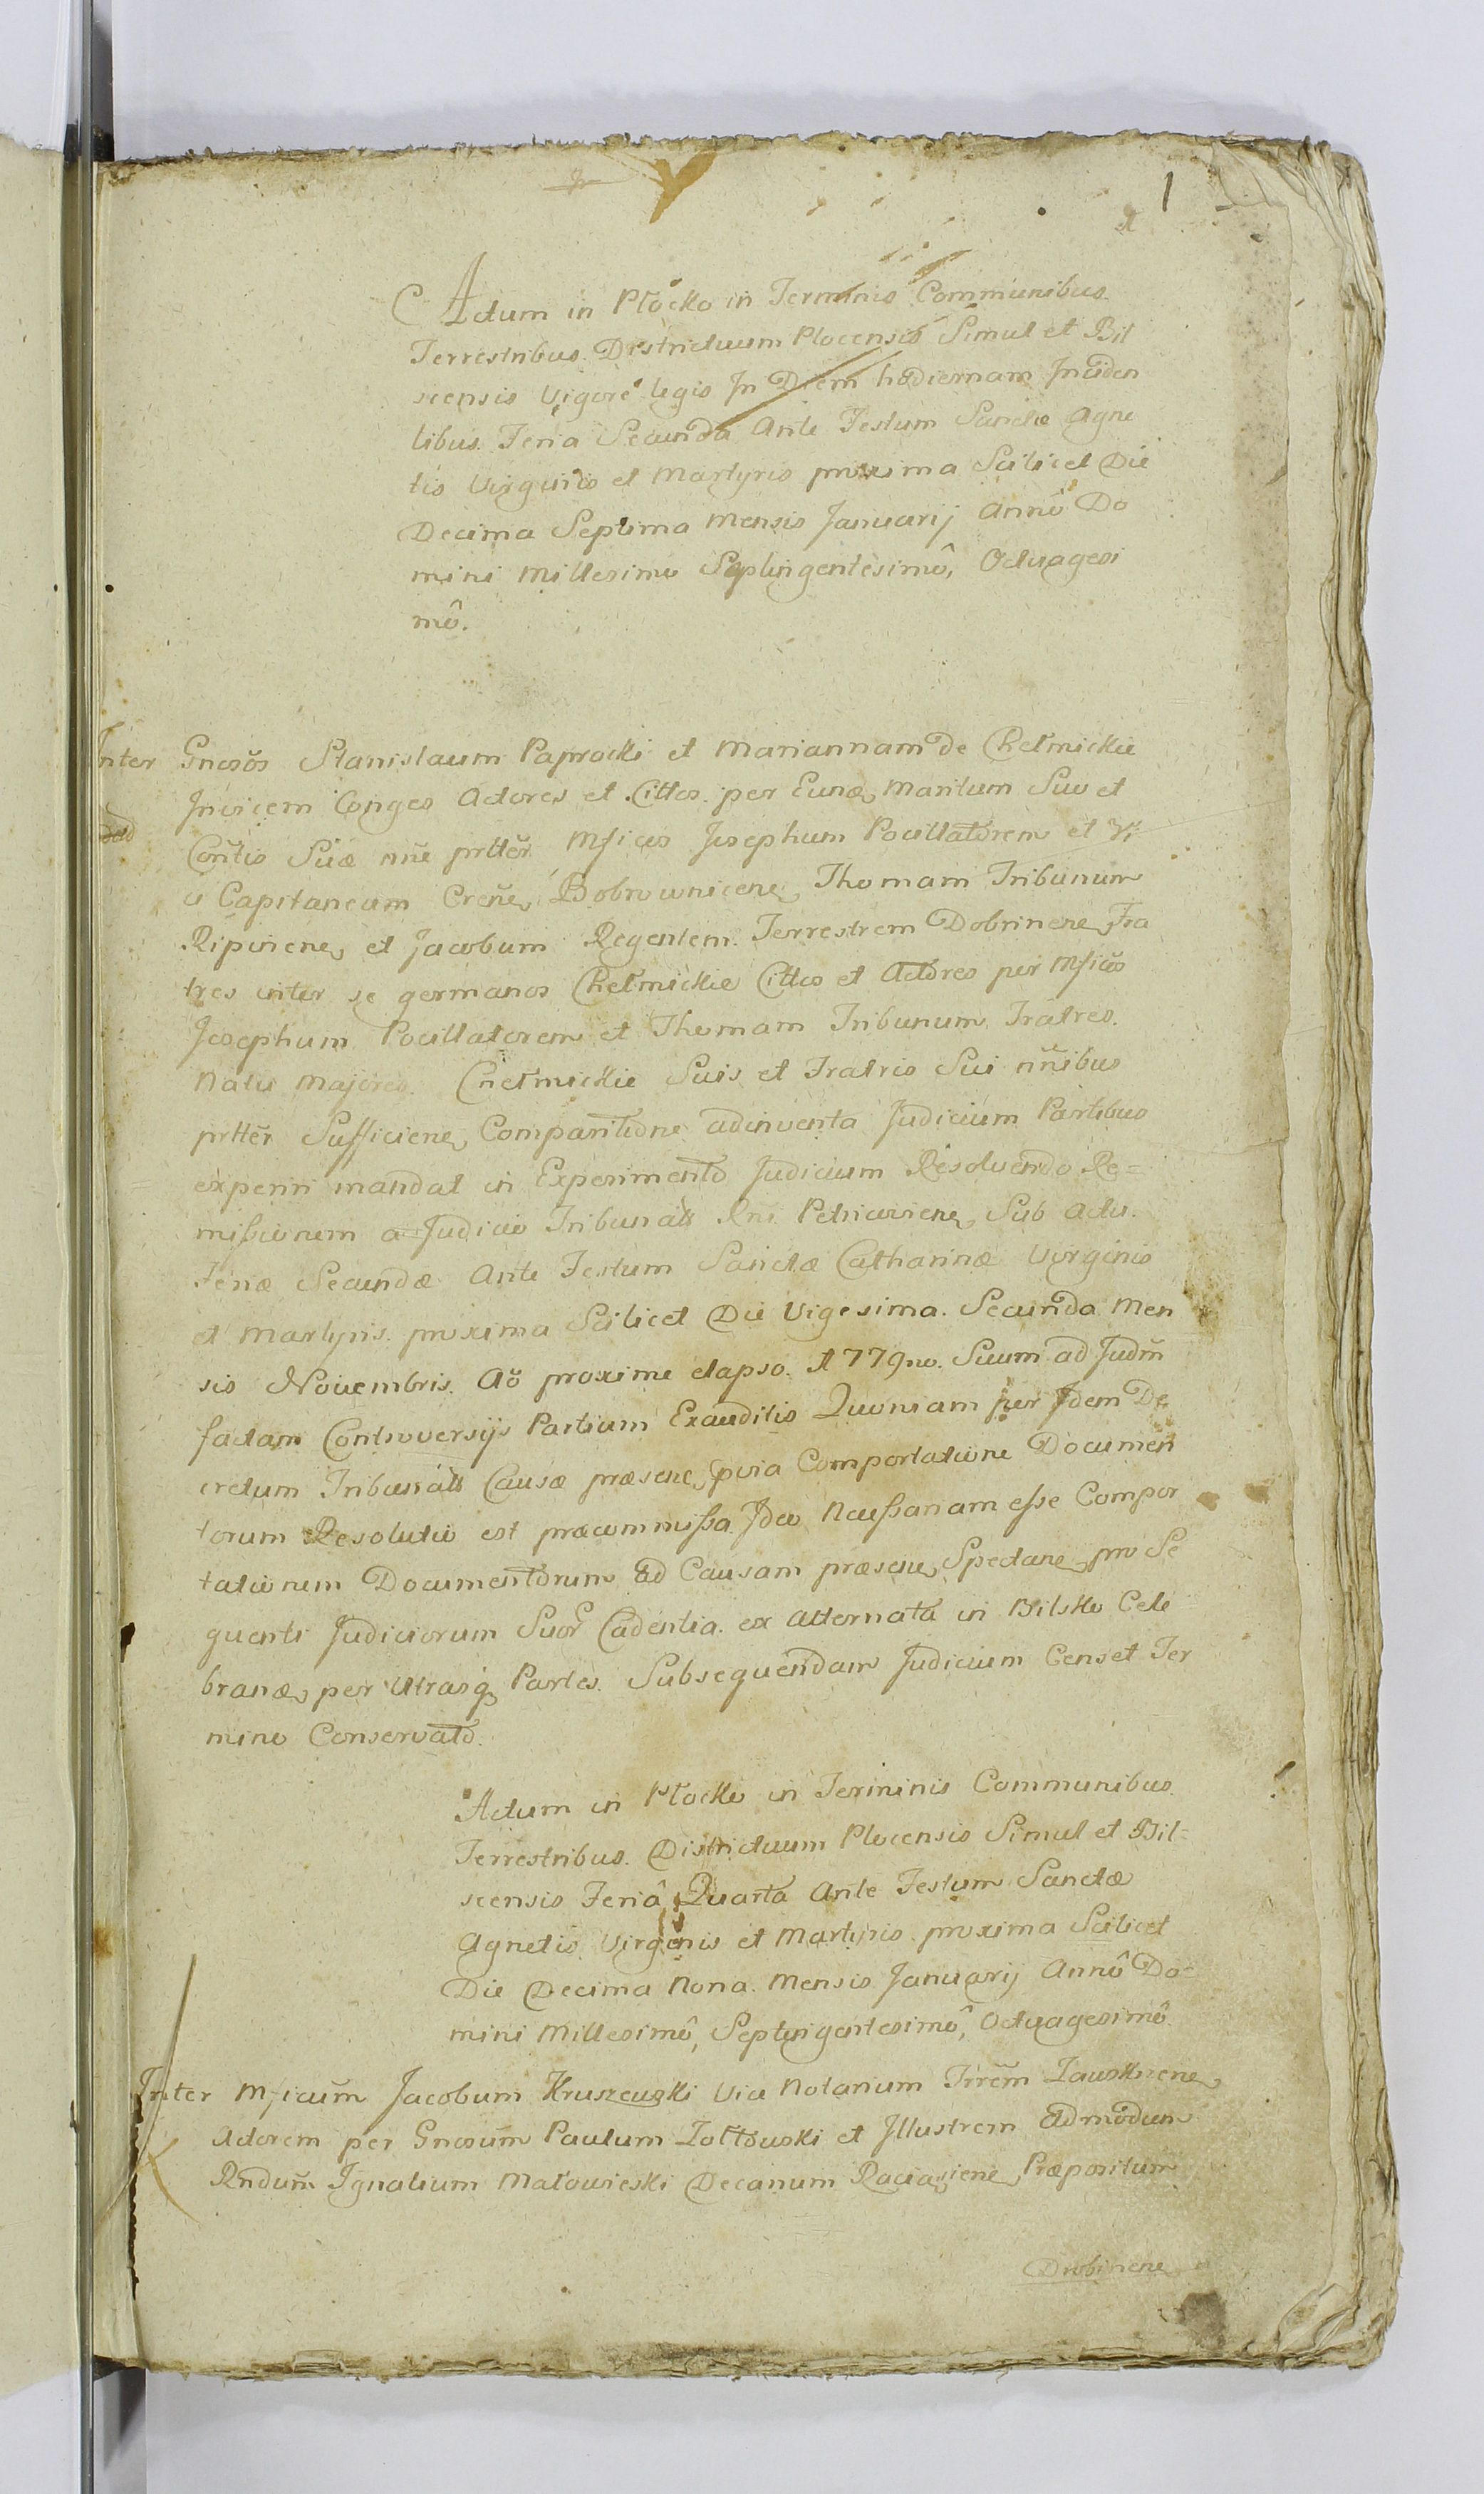 1
Actum in Płocko in Terminis Communibus
Terrestribus Districtuum Plocensis Simul et Bil
scensis Vigore legis In Diem hodiernam Inciden
tibus Feria Secunda Ante Festum Sanctæ Agne
tis Virginis et Martyris proxima Scilicet Die
Decima Septima Mensis Januarij Annô Do
mini Millesimo Septingentesimô, Octuagesi
mô.
Inter Gnosōs Stanislaum Paprocki et Mariannam de Chełmickie
Invicem Conges Actores et Cittos per Eund Maritum Suo et
Contis Suæ nne prtter Mficos Josephum Pocillatorem et Vi
ce Capitaneum Crene Bobrownicene, Thomam Tribunum
Ripinene, et Jacobum Regentem Terrestrem Dobrinene Fra
tres inter se germanos Chełmickie Cittos et Actores per Mficos
Josephum Pocillatorem et Thomam Tribunum Fratres
Natu Majores Chełmickie Suis et Fratris Sui nnibus
prtter Sufficiene, Comparitione adinventa Judicium Partibus
experiri mandat in Experimento Judicium Resolvendo Re=
missionem a Judicio Tribunalt Rni Petricoviene, Sub Actu
Feriæ Secundæ Ante Festum Sanctæ Catharinæ Virginis
et Martyris proxima Scilicet Die Vigesima Secunda Men
sis Novembris Aō proxime elapso 1779no. Suum ad Judm
factam Controversijs Partium Exauditis Quoniam per Idem De
cretum Tribunalt Causæ præsene, pvia Comportatione Documen
torum Resolutio est præcommissa Ideo Necessariam esse Compor
tationem Documentorum ad Causam præsene, Spectane, pro Se
quenti Judiciorum Suor Cadentia ex Alternata in Bilsko Cele
brand, per Utrasq Partes Subsequendam Judicium Censet Ter
mino Conservato.
Actum in Płocko in Terminis Communibus
Terrestribus Districtuum Plocensis Simul et Bil=
scensis Feriâ Quarta Ante Festum Sanctæ
Agnetis Virginis et Martyris proxima Scilicet
Die Decima Nona Mensis Januarij Annô Do=
mini Millesimô, Septingentesimô, Octuagesimô
Inter Mficum Jacobum Kruszewski Vice Notarium Trrēm Zawskrene,
Actorem per Gnosum Paulum Zołtowski et Illustrem Admodum
Rndum Ignatium Małowieski Decanum Raciążiene Præpositum
Drobinene